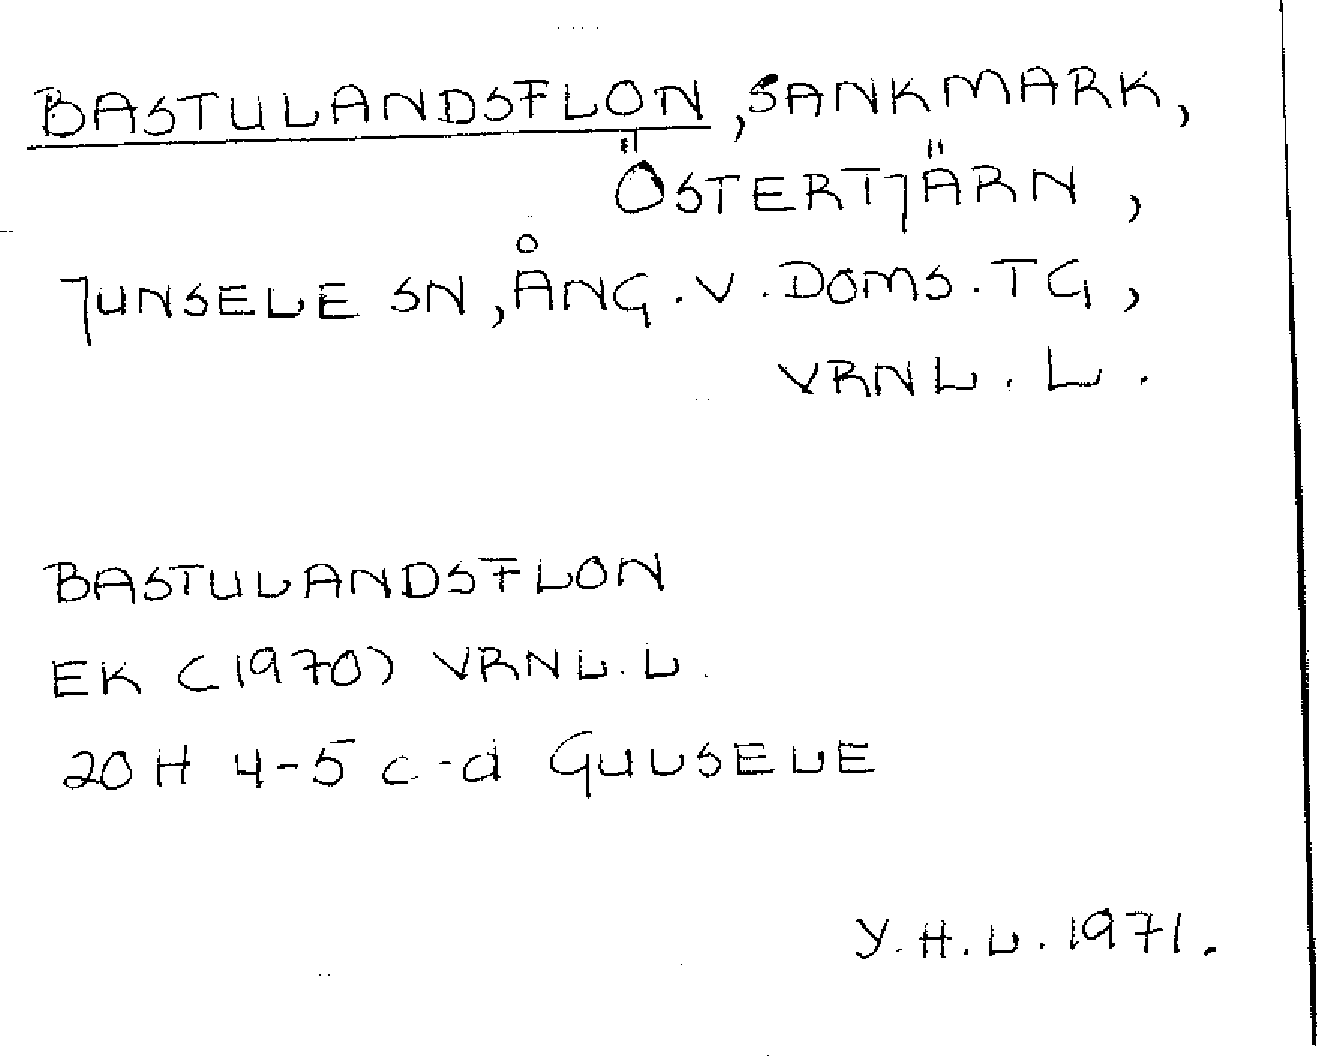 BASTULANDSFLON, SANKMARK,
ÖSTERTJÄRN,
JUNSELE SN, ÅNG. V. DOMS. TG,
VRNL. L.
BASTULANDSFLON
EK (1970) VRNL. L.
20 H 4-5 c-d GULSELE
Y. H. L. 1971.